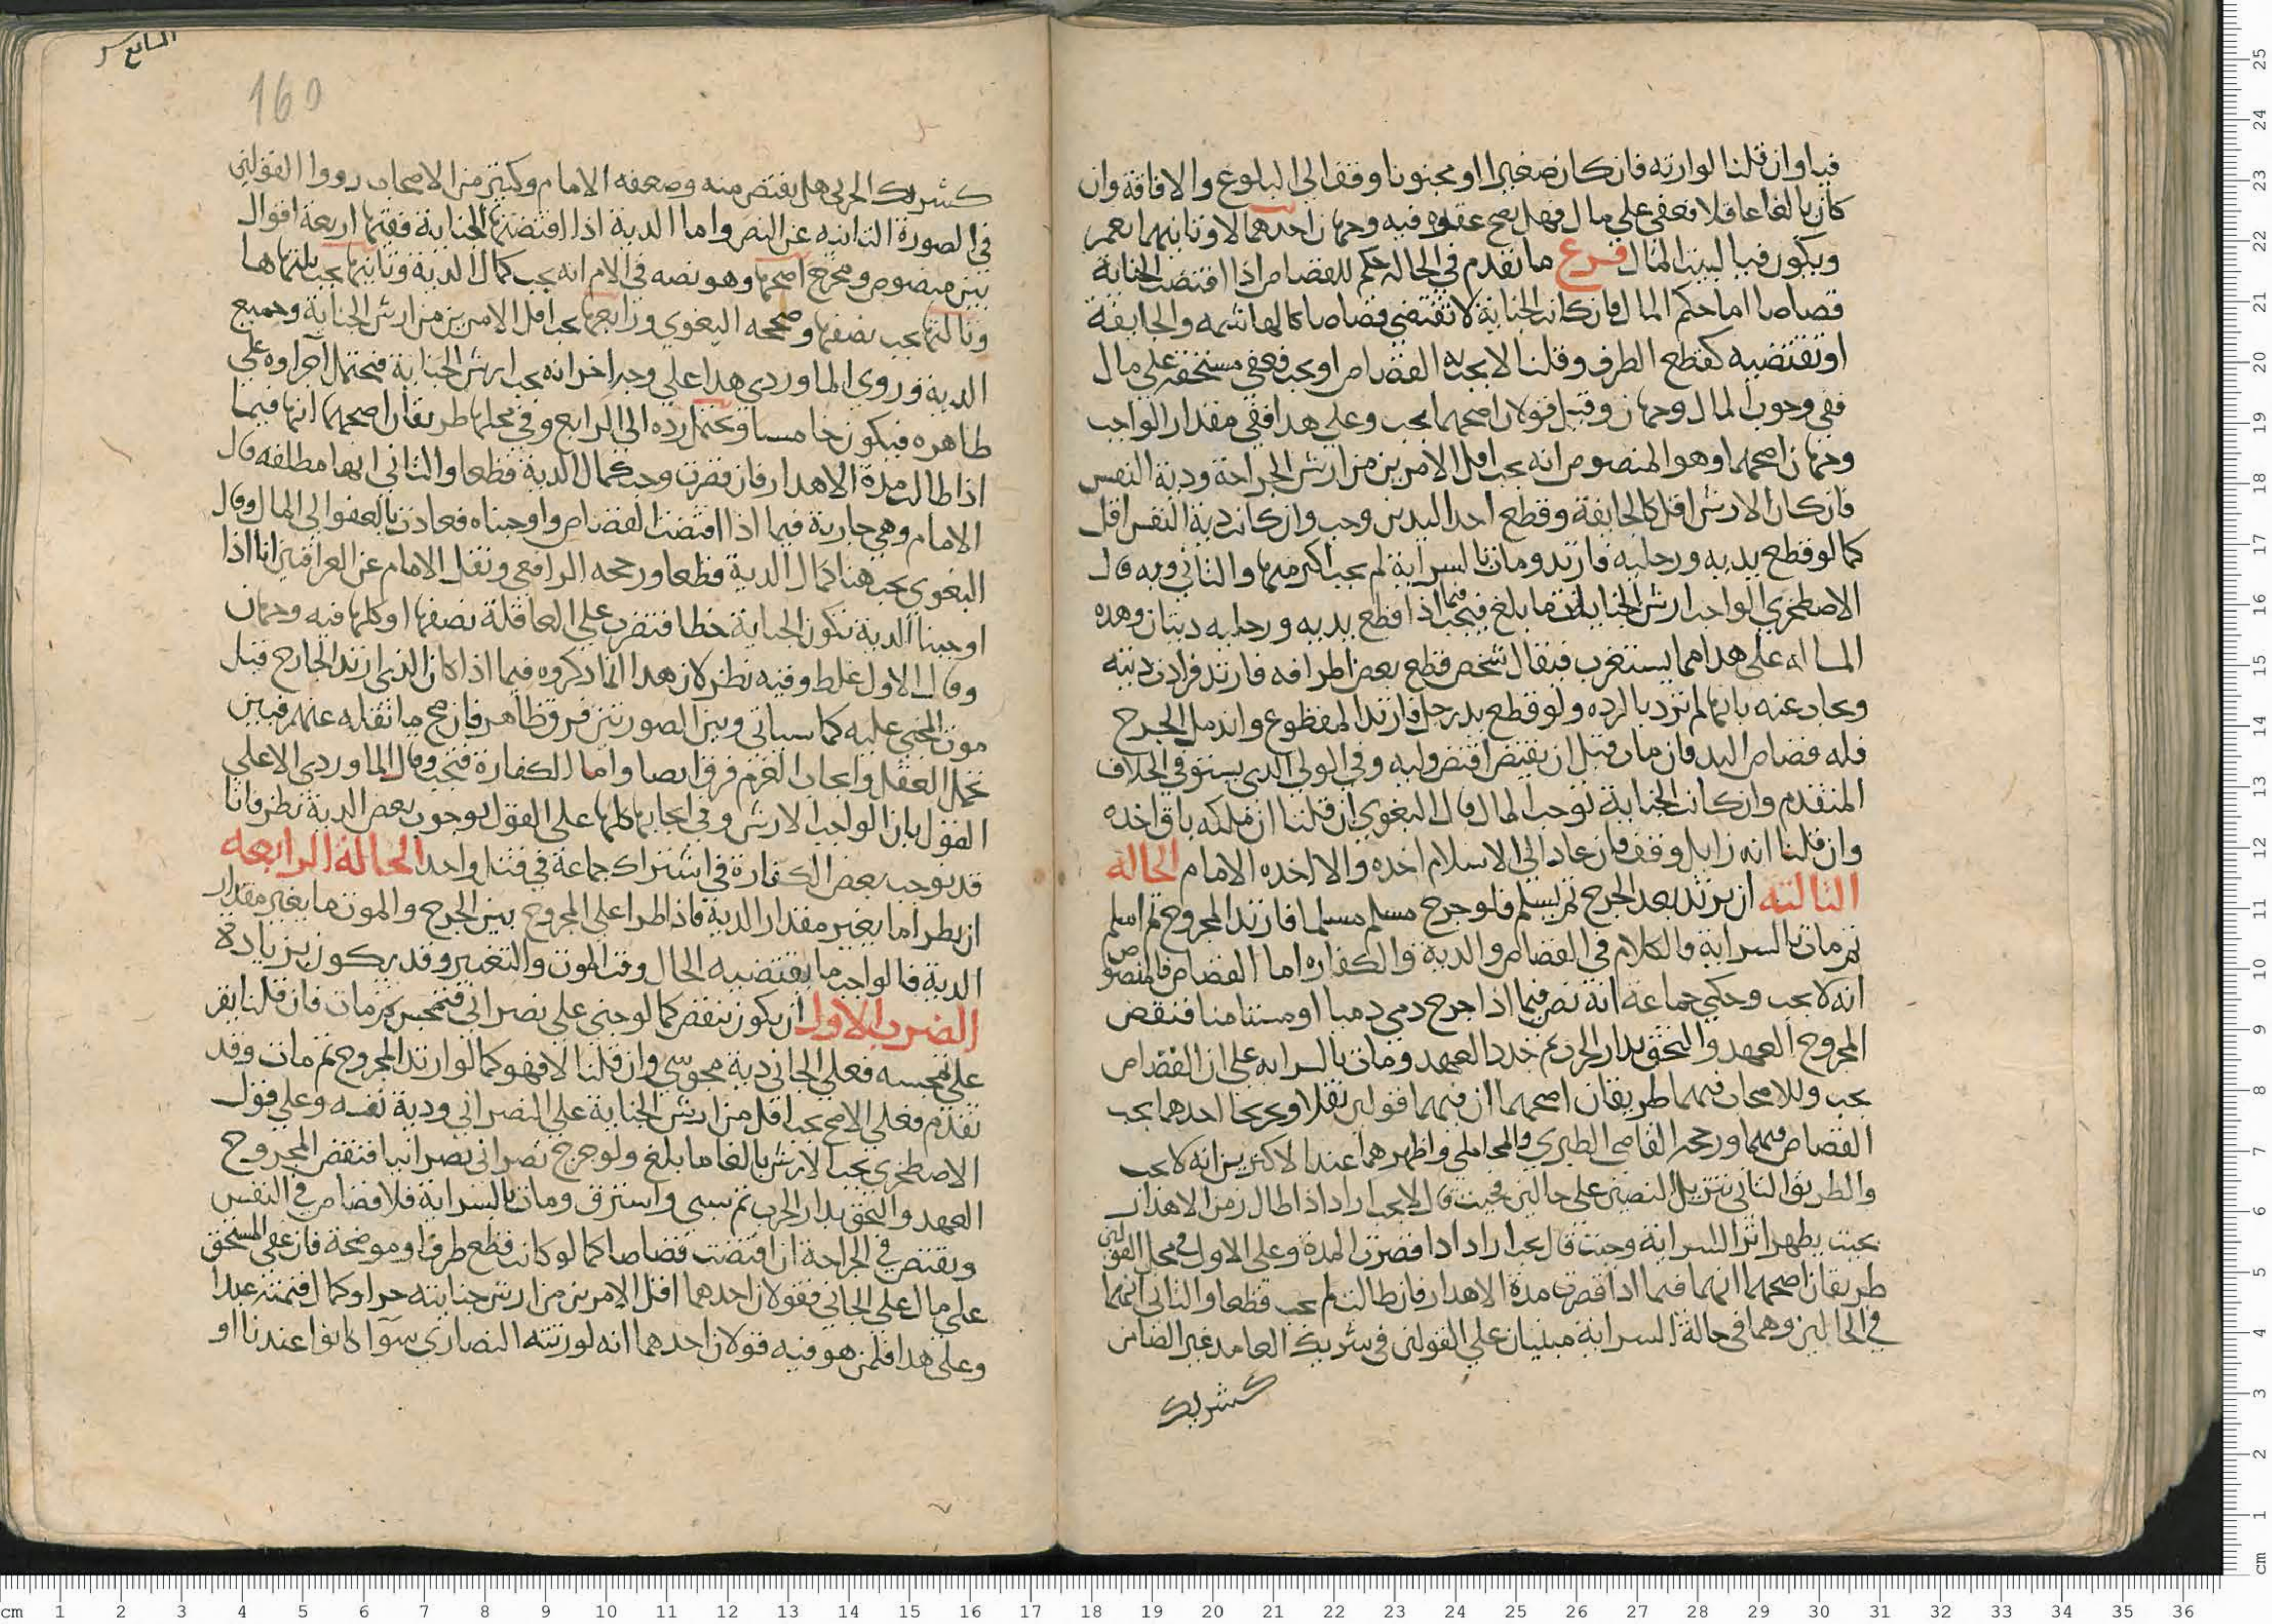 فيا وان قلنا لوارثه فان كان صغيرا او مجنونا وقف الى البلوغ والافاقة وان
كان بالغا عاقلا فعفى على مال فهل يصح عفوه فيه وجهان احدهما لا وثانيهما نعم
ويكون فيا لبيت المال فرع ما تقدم في الحالة حكم للقصاص اذا اقتضت الجناية
قصاصا اما حكم المال فان كانت الجناية لا تقتضي قصاصا كالهاشمه والجايفة
او تقتضيه كقطع الطرف وقلنا لا يجب به القصاص او يجب فعفى مستحقه على مال
ففي وجوب المال وجهان وقيل قولان اصحهما يجب وعلى هذا ففي مقدار الواجب
وجهان اصحهما وهو المنصوص انه يجب اقل الامرين من ارش الجراحة ودية النفس
فان كان الارش اقل كالجايفة وقطع احد اليدين وجب وان كانت دية النفس اقل
كما لو قطع يديه ورجليه فارتد ومات بالسراية لم يجب اكثر منها والثاني وبه قال
الاصطخري الواجب ارش الجناية بالغا ما بلغ فيجب فيما اذا قطع يديه ورجليه ديتان وهذه
المساله على هذا مما يستغرب فيقال شخص قطع بعض اطرافه فارتد فزادت ديته
ويجاب عنه بانها لم تزد بالرده ولو قطع يد رجل فارتد المقطوع واندمل الجرح
فله قصاص اليد فان مات قبل ان يقتص اقتص وليه وفي الولي الذي يستوفي الخلاف
المتقدم وان كانت الجناية توجب المال قال البغوي ان قلنا ان ملكه باق اخذه
وان قلنا انه زايل وقف فان عاد الى الاسلام اخذه والا اخذه الامام الحالة
الثالثة ان يرتد بعد الجرح ثم يسلم فلو جرح مسلم مسلما فارتد المجروح ثم اسلم
ثم مات بالسراية فالكلام في القصاص والدية والكفاره اما القصاص فالمنصوص
انه لا يجب وحكى جماعة انه نص فيما اذا جرح ذمي ذميا او مستامنا فنقض
المجروح العهد والتحق بدار الحرب ثم جدد العهد ومات بالسرايه على ان القصاص
يجب وللاصحاب فيهما طريقان اصحهما ان فيهما قولين نقلا وتخريجا احدهما يجب
القصاص فيهما ورجحه القاضي الطبري والمحاملي واظهرهما عند الاكثرين انه لا يجب
والطريق الثاني تنزيل النصين على حالين فحيث قال لا يجب اراد اذا طال زمن الاهدار
بحيث يظهر اثر السراية وحيث قال يجب اراد اذا قصرت المدة وعلى الاول في محل القولين
طريقان اصحهما انهما فيما اذا قصرت مدة الاهدار فان طالت لم يجب قطعا والثاني انهما
في الحالين وهما في حالة السراية مبنيان على القولين في شريك العامد غير الضامن
كشريك
160
كشريك الحربي هل يقتص منه وضعفه الامام وكثير من الاصحاب رووا القولين
في الصورة الثانيه عن النص واما الدية اذا اقتضتها الجناية ففيها اربعة اقوال
بين منصوص ومخرج اصحها وهو نصه في الام انه يجب كمال الدية وثانيها يجب ثلثاها
وثالثها يجب نصفها وصححه البغوي ورابعها يجب اقل الامرين من ارش الجناية وجميع
الدية وروى الماوردي هذا على وجه اخر انه يجب ارش الجناية فيحتمل اجراوه على
ظاهره فيكون خامسا ويحتمل رده الى الرابع وفي محلها طريقان اصحهما انها فيما
اذا طالت مدة الاهدار فان قصرت وجب كمال الدية قطعا والثاني انها مطلقه قال
الامام وهي جارية فيما اذا اقتضت القصاص واوجبناه فعادت بالعفو الى المال وقال
البغوي يجب هنا كمال الدية قطعا ورجحه الرافعي ونقل الامام عن العراقيين انا اذا
اوجبنا الدية بكون الجناية خطا فتضرب على العاقلة نصفها او كلها فيه وجهان
وقال الاول غلط وفيه نظر لان هذا انما ذكروه فيما اذا كان الذي ارتد الجارح قبل
موت المجني عليه كما سياتي وبين الصورتين فرق ظاهر فان صح ما نقله عنهم فبين
تحمل العقل وايجاب الغرم فرق ايضا واما الكفارة فتجب وقال الماوردي الا على
القول بان الواجب الارش وفي ايجابها كلها على القول بوجوب بعض الدية نظر فانا
قد نوجب بعض الكفارة في اشتراك جماعة في قتل واحد الحالة الرابعه
ان يطرا ما يغير مقدار الدية فاذا طرا على المجروح بين الجرح والموت ما يغير مقدار
الدية فالواجب ما يقتضيه الحال وقت الموت والتغيير وقد يكون بزيادة
الضرب الاول ان يكون بنقص كما لو جنى على نصراني فتمجس ثم مات فان قلنا يقر
على تمجسه فعلى الجاني دية مجوسي وان قلنا لا فهو كما لو ارتد المجروح ثم مات وقد
تقدم فعلى الاصح يجب اقل من ارش الجناية على النصراني ودية نفسه وعلى قول
الاصطخري يجب الارش بالغا ما بلغ ولو جرح نصراني نصرانيا فنقض المجروح
العهد والتحق بدار الحرب ثم سبي واسترق ومات بالسراية فلا قصاص في النفس
ويقتص في الجراحة ان اقتضت قصاصا كما لو كانت قطع طرف او موضحة فان عفى المستحق
على مال على الجاني فقولان احدهما اقل الامرين من ارش جنايته حرا وكمال قيمته عبدا
وعلى هذا فلمن هو فيه قولان احدهما انه لورثته النصارى سوآ كانوا عندنا او